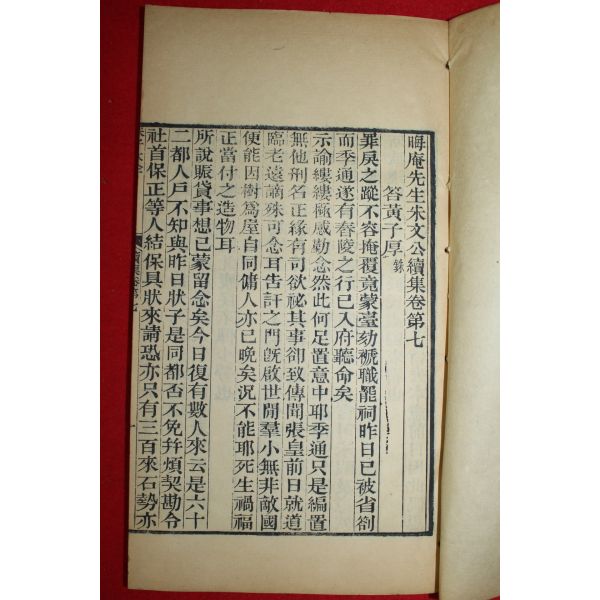 晦庵先生朱文公續集卷第七
答黃子厚銖
罪戾之蹤不容掩覆竟蒙臺劾褫職罷祠昨日已被省劄
而季通遂有舂陵之行已入府聽命矣
示諭縷縷極感勤念然此何足置意中耶季通只是編置
無他刑名正緣有司欲祕其事卻致傳聞張皇前日就道
臨老遠謫殊可念耳告訐之門旣啟世閒羣小無非敵國
便能因樹爲屋自同傭人亦已晩矣況不能耶死生禍福
正當付之造物耳
所說賑貸事想已蒙留念矣今日復有數人來云是六十
二都人戶不知與昨日狀子是同都否不免幷煩契勘令
社首保正等人結保具狀來請恐亦只有三百來石勢亦
續集卷第七